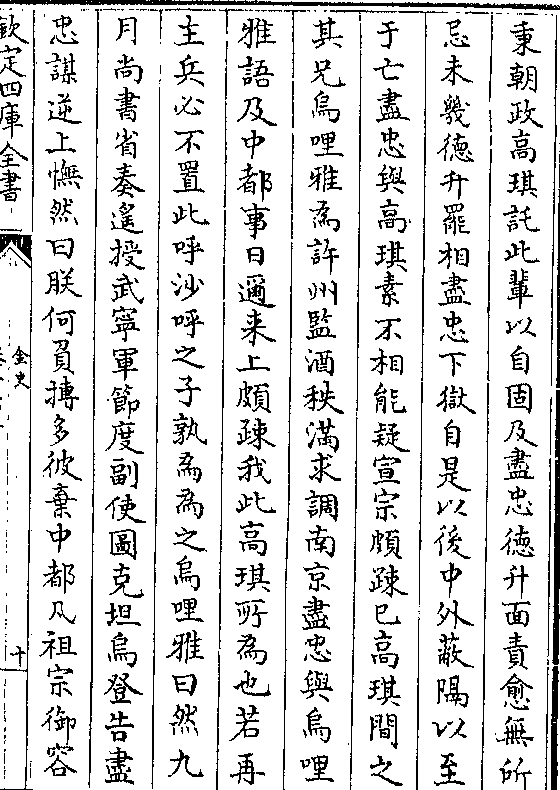 秉朝政高琪託此輩以自固及盡忠徳升面責愈無所
忌未幾徳升罷相盡忠下獄自是以後中外蔽隔以至
于亡盡忠與高琪素不相能疑宣宗頗踈已高琪間之
其兄烏哩雅為許州監酒秩滿求調南京盡忠與烏哩
雅語及中都事曰邇来上頗踈我此高琪所為也若再
主兵必不置此呼沙呼之子孰為為之烏哩雅曰然九
月尚書省奏遙授武寧軍節度副使圖克坦烏登告盡
忠謀逆上憮然曰朕何負摶多彼棄中都凡祖宗御容
欽定四庫全書
金史
十